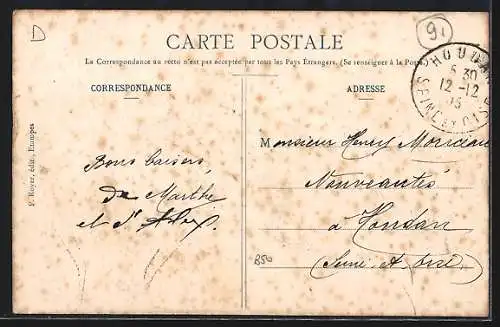 D
91
CARTE POSTALE
La Correspondance au recto n'est pas acceptée par tous les Pays Étrangers. (Se renseigner à la Poste.)
CORRESPONDANCE
ADRESSE
HOUDAN
5 30
12 -12
SEINE ET OISE
Monsieur Henry
Nouveautés
à Houdan
(Seine et Oise)
Bons baisers
de Marthe
et d'
F. Royer, édit., Etampes
B50